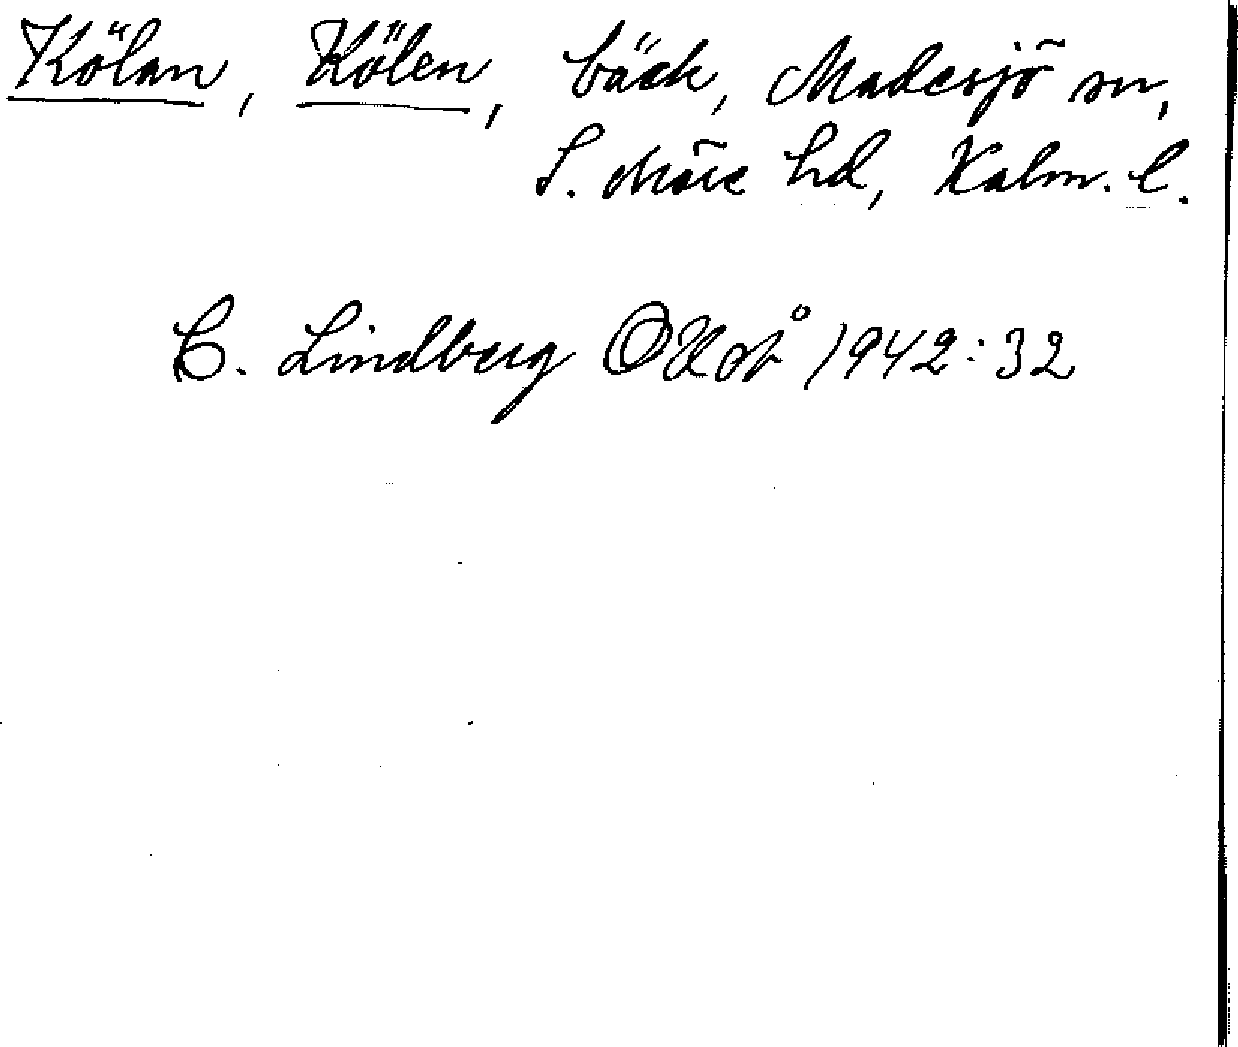 Kölan, Kölen, bäck, Madesjö sn,
S. Möre hd, Kalm. l.
C. Lindberg 1942:32